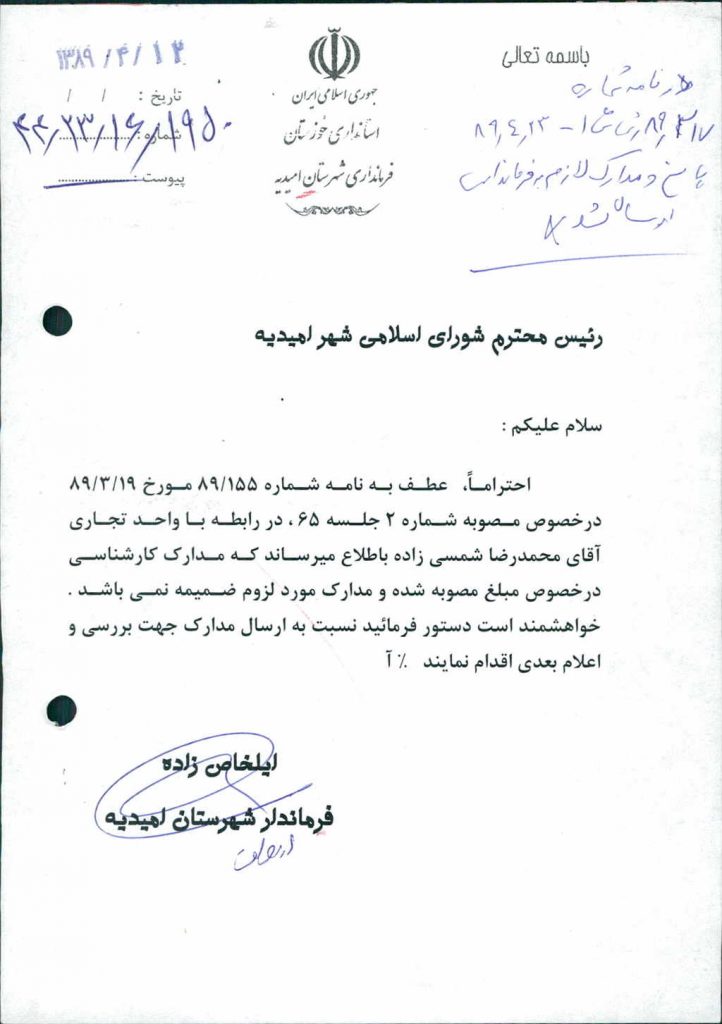 باسمه تعالی
جمهوری اسلامی ایران
استانداری خوزستان
فرمانداری شهرستان امیدیه
۱۳۸۹/۴/۱۲
تاریخ : / /
شماره :
۴۴٫۲۳/۱۶/۱۹۵۰
پیوست :
نامه شماره
۸۹٫۴٫۲۳
پاسخ و مدارک لازم به فرمانداری
ارسال شد
رئیس محترم شورای اسلامی شهر امیدیه
سلام علیکم :
احتراماً، عطف به نامه شماره ۸۹/۱۵۵ مورخ ۸۹/۳/۱۹
درخصوص مصوبه شماره ۲ جلسه ۶۵ ، در رابطه با واحد تجاری
آقای محمدرضا شمسی زاده باطلاع میرساند که مدارک کارشناسی
درخصوص مبلغ مصوبه شده و مدارک مورد لزوم ضمیمه نمی باشد .
خواهشمند است دستور فرمائید نسبت به ارسال مدارک جهت بررسی و
اعلام بعدی اقدام نمایند ٪ آ
ایلخاص زاده
فرماندار شهرستان امیدیه